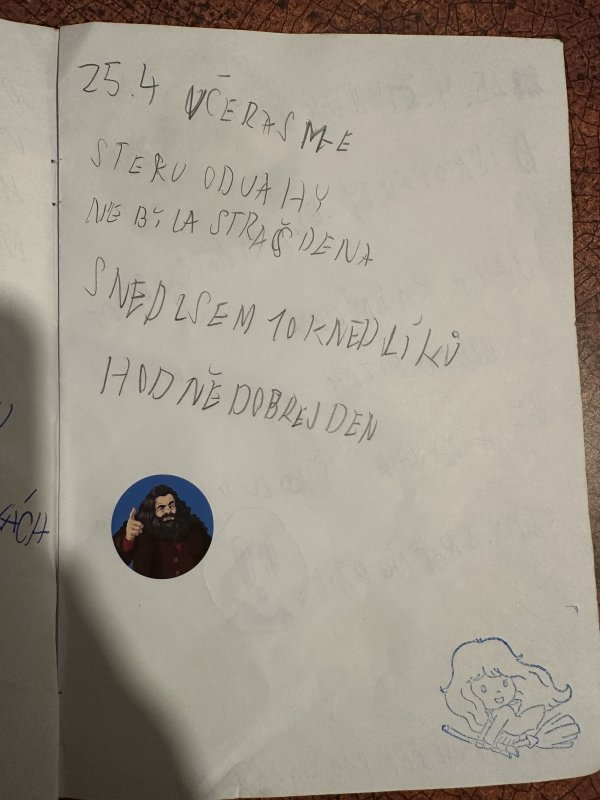 25.4 VČERA SME
STEZKU ODVAHY
NEBYLA STRAŠDENA
SNEDL SEM 10 KNEDLÍKŮ
HODNĚ DOBREJ DEN